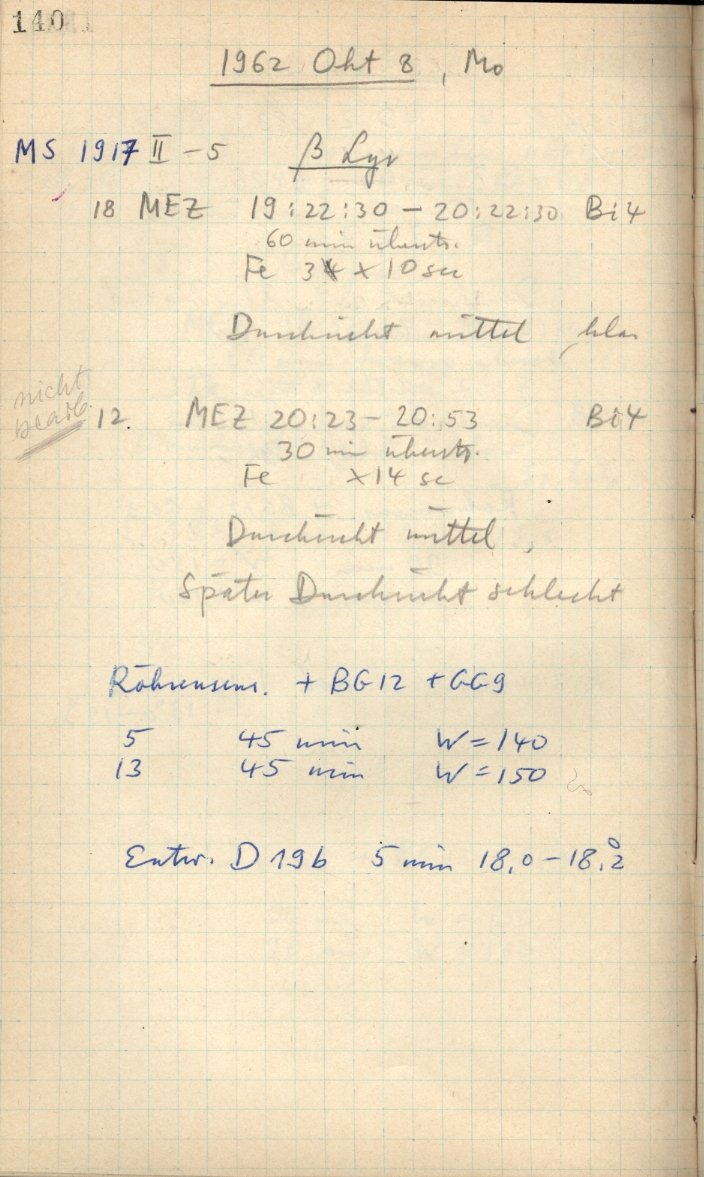 140
1962 Okt 8, Mo
MS 1917 II - 5 β Lyr
18 MEZ 19:22:30 - 20:22:30 Bi4
60 min überstr.
Fe 3 × 10 sec
Durchsicht mittel, klar
nicht
bearb.
12. MEZ 20:23 - 20:53 Bi4
30 min überstr.
Fe ×14 sec
Durchsicht mittel,
Später Durchsicht schlecht
Röhrensens. + BG12 + GG9
5 45 min W = 140
13 45 min W = 150
Entw. D19b 5 min 18,0 - 18,2°